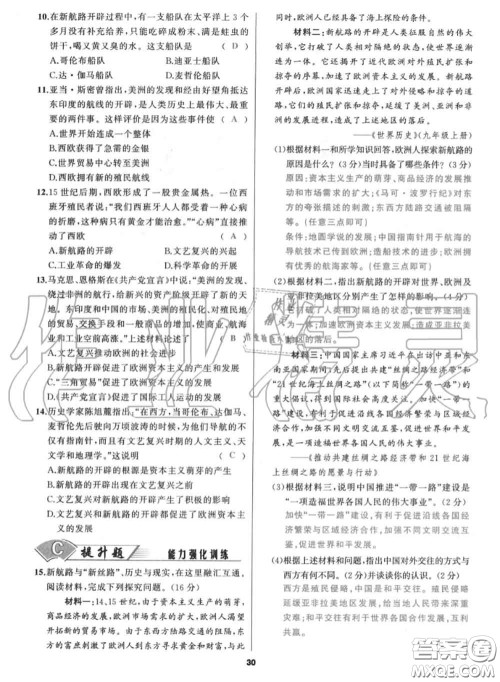 10.在新航路开辟过程中,有一支船队在太平洋上3个
多月没有补充给养,只能吃碎成粉末、满是蛀虫的
饼干,喝又黄又臭的水。这支船队是 ( D )
A.哥伦布船队 B.迪亚士船队
C.达·伽马船队 D.麦哲伦船队
11.亚当·斯密曾指出,美洲的发现和经由好望角抵达
东印度的航线的开辟,是人类历史上最伟大、最重
要的两件事。这样评价是因为这两件事 ( A )
A.世界开始连成一个整体
B.西欧获得了急需的黄金
C.世界贸易中心转至美洲
D.西欧拥有新的殖民航线
12.15世纪后期,西欧形成了一股贵金属热。一位西
班牙殖民者说:“我们西班牙人人都受着一种心病
的折磨,这种病只有黄金才能治愈。”“心病”直接推
动了西欧 ( A )
A.新航路的开辟 B.文艺复兴的兴起
C.工业革命的爆发 D.科学革命的开展
13.马克思、恩格斯在《共产党宣言》中说:“美洲的发现、
绕过非洲的航行,给新兴的资产阶级开辟了新的天
地。东印度和中国的市场、美洲的殖民化、对殖民地
的贸易、交换手段和一般商品的增加,使商业、航海
业和工业空前高涨。”上述材料论述了 ( B )
A.文艺复兴推动了欧洲的社会进步
B.新航路开辟促进了欧洲资本主义的产生和发展
C.“三角贸易”促进了欧洲资本主义的发展
D.《共产党宣言》促进了国际工人运动的发展
14.历史学家陈旭麓指出:“在西方,当哥伦布、达伽马、
麦哲伦先后驶向万顷波涛的时候,他们凭借的不
仅有指南针,而且有文艺复兴时期的人文主义、天
文学和地理学。”这说明 ( C )
A.新航路的开辟的根源是资本主义的发展
B.新航路的开辟对文艺复兴产生了积极的影响
C.文艺复兴对新航路的开辟产生了积极的影响
D.文艺复兴与新航路的开辟都促进了资本主义
的发展
C 提升题 能力强化训练
15.新航路与“新丝路”,历史与现实,在这里融汇互通。
阅读材料,完成下列探究问题。(16分)
材料一:14、15世纪,由于资本主义的萌芽,
商品经济的发展,欧洲市场需求大增,欧洲人渴望
开拓新的贸易市场。由于东方陆路交通的阻隔,东
方的富庶刺激了欧洲人到东方寻求黄金和财富,与此
同时,欧洲人已经具备了海上探险的条件。
材料二:新航路的开辟是人类征服自然的伟大
创举,它打破了人类相对隔绝的状态,使世界逐渐
连为一体。它还揭开了近代欧洲对外殖民扩张和
掠夺的序幕,加速了欧洲资本主义的发展。新航路
开辟后,欧洲国家迅速走上了对外侵略和掠夺的道
路,它们的殖民扩张和掠夺,延缓了美洲、亚洲和非
洲的发展进程,造成了上述地区的落后。
——《世界历史》(九年级上册)
(1)根据材料一和所学知识回答,欧洲人探索新航路的
原因是什么?(3分)当时具备了哪些条件?(3分)
原因:资本主义生产的萌芽、商品经济的发展推
动和市场需求的扩大;《马可·波罗行纪》对东
方的夸张描述的刺激;东西方陆路交通被阻隔
等。(任意三点即可)
条件:地圆学说的发展;中国指南针用于航海的
导航技术已传到欧洲;造船技术的进步;欧洲
拥有优秀的航海家等。(任意三点即可)
(2)根据材料二,指出新航路的开辟对世界、欧洲及
亚非拉美地区分别产生了怎样的影响。(3分)
打破了人类相对隔绝的状态,使世界逐渐连为
一体;加速欧洲资本主义发展;造成亚非拉美
地区的落后。
材料三:中国国家主席习近平在出访中亚和东
南亚国家期间,先后提出共建“丝绸之路经济带”和
“21世纪海上丝绸之路”(以下简称“一带一路”)的
重大倡议,得到国际社会高度关注。“一带一路”建
设,有利于促进沿线各国经济繁荣与区域经济
合作,加强不同文明交流互鉴,促进世界和平发展,
是一项造福世界各国人民的伟大事业。
——《推动共建丝绸之路经济带和21世纪海
上丝绸之路的愿景与行动》
(3)根据材料三,说明中国推进“一带一路”建设是
“一项造福世界各国人民的伟大事业”。(2分)
加快“一带一路”建设,有利于促进沿线各国经
济繁荣与区域经济合作,加强不同文明交流互
鉴,促进世界和平发展。
(4)根据上述材料和问题,指出中国对外交往的方式与
西方的不同,并谈谈你的认识。(5分)
西方是殖民侵略,中国是和平交往。殖民侵略
延缓亚非拉美地区发展,给当地人民带来深重
灾难;和平交往有利于促进各国共同发展,互利
共赢。
30